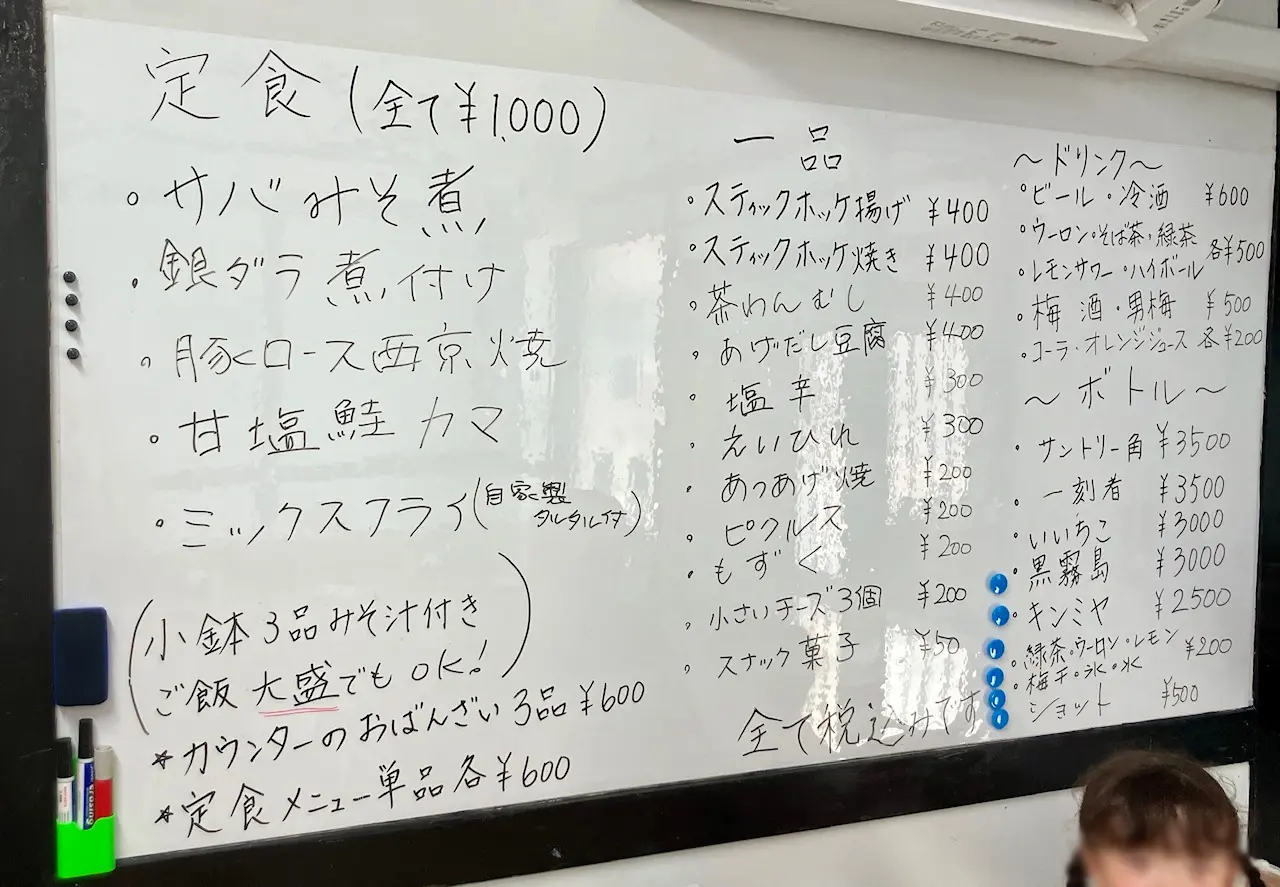 定食(全て¥1,000)
・サバみそ煮
・銀ダラ煮付け
・豚ロース西京焼
・甘塩鮭カマ
・ミックスフライ(自家製タルタル付)
(小鉢3品みそ汁付き
ご飯大盛でもOK!)
*カウンターのおばんざい3品¥600
*定食メニュー単品各¥600
一品
・スティックホッケ揚げ ¥400
・スティックホッケ焼き ¥400
・茶わんむし ¥400
・あげだし豆腐 ¥400
・塩辛 ¥300
・えいひれ ¥300
・あつあげ焼 ¥200
・ピクルス ¥200
・もずく ¥200
・小さいチーズ3個 ¥200
・スナック菓子 ¥50
全て税込みです
～ドリンク～
・ビール・冷酒 ¥600
・ウーロン・そば茶・緑茶
・レモンサワー・ハイボール 各¥500
・梅酒・男梅 ¥500
・コーラ・オレンジジュース 各¥200
～ボトル～
・サントリー角 ¥3500
・一刻者 ¥3500
・いいちこ ¥3000
・黒霧島 ¥3000
・キンミヤ ¥2500
・緑茶・ウーロン・レモン
・梅干・氷・水 ¥200
ショット ¥500